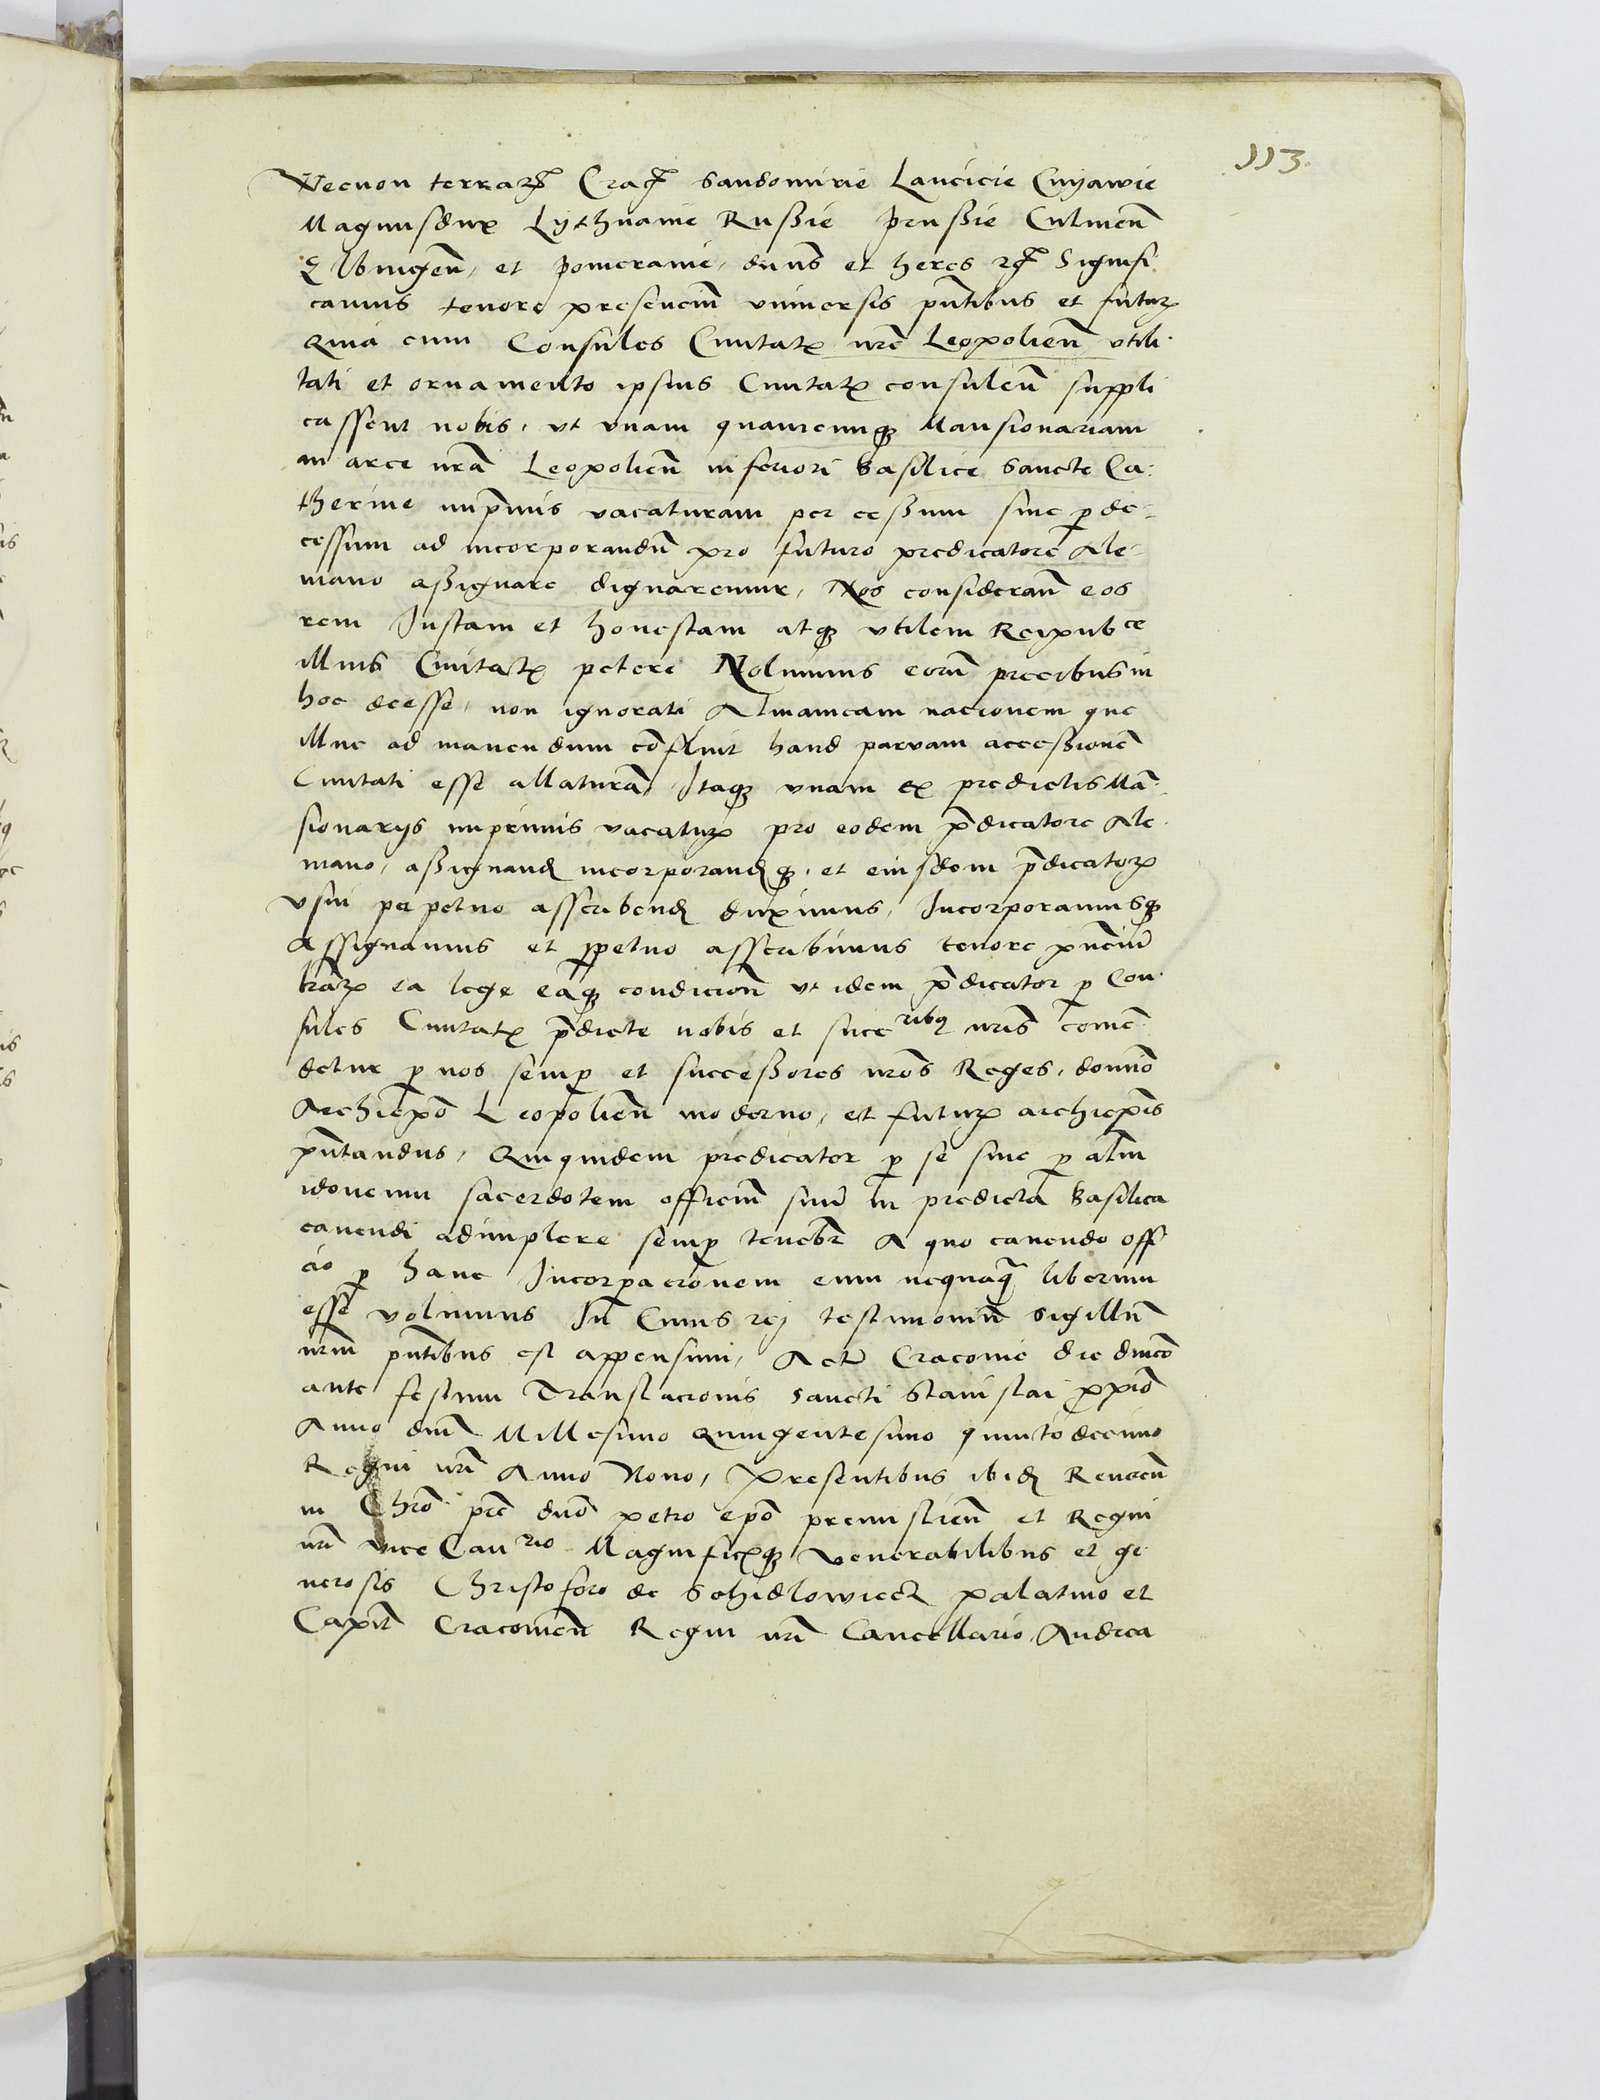 113.
Necnon terrarꝝ Cracꝭ Sandomirie Lancicie Cuyawie
Magnusdux Lythuanie Russie Prussie Culmen̄
Elbingen̄, et Pomeranie, dn̄us et heres rꝭ Signifi
camus tenore presenciū vniuersis pn̄tibus et futurꝭ
Quia cum Consules Ciuitatꝭ nr̄e Leopolien̄ vtili-
tati et ornamento ipsius Ciuitatꝭ consulen̄ suppli
cassent nobis, vt vnam quamcunqꝫ Mansionariam
in arce nr̄a Leopolien̄ inferiori Basilice Sancte Ca-
therine inp̄mis vacaturam per cessum siue ꝑ de-
cessum ad incorporandū pro futuro predicatore Ale-
mano assignare dignaremur, Nos consideran̄ eos
rem Justam et honestam atqꝫ vtilem Reipubce
illius Ciuitatꝭ petere Noluimus eorū precibus in
hoc deesse, non ignorati Almanicam nacionem que
illuc ad manendum cōfluit haud paruam accessionē
Ciuitati esse allaturā, Itaqꝫ vnam ex predictis Mā-
sionarijs inprimis vacaturꝭ pro eodem p̄dicatore Ale-
mano, assignandꝭ incorporandꝭqꝫ, et eiusdem p̄dicatorꝭ
vsui perpetuo asscribendꝭ duximus, Incorporamusqꝫ
Assignamus et ꝑpetuo asscribimus tenore pn̄ciū
lr̄arꝝ ea lege eaqꝫ condicion̄ vt idem p̄dicator ꝑ Con-
sules Ciuitatꝭ p̄dicte nobis et succribꝰ nr̄is comē-
detur ꝑ nos semꝑ et successores nr̄os Reges, domīo
Archiep̄o Leopolien̄ moderno, et futurꝭ archiep̄is
pn̄tandus, Quiquidem predicator ꝑ se siue ꝑ aliū
idoneum sacerdotem officiū suū in predicta Basilica
canendi adimplere semꝑ tenebr̄ A quo canendo offi
cio ꝑ hanc Incorporacionem eum nequaqꝫ liberum
esse volumus In Cuius rej testimoniū sigillū
nr̄m pn̄tibus est appensum, Actū Cracouie die dn̄ico
ante festum Translacionis Sancti Stanislai proxīo
Anno dn̄i Millesimo Quingentesimo quintodecimo
Regni nr̄i Anno Nono, Presentibus ibidꝭ Reueren̄
in Chr̄o pr̄e dn̄o petro ep̄o premislien̄ et Regni
nr̄i viceCanrio Magnificꝭqꝫ venerabilibus et ge-
nerosis Christoforo de Schidlowiecz palatino et
Capit̄ Cracouien̄ Regni nr̄i Cancellario, Andrea